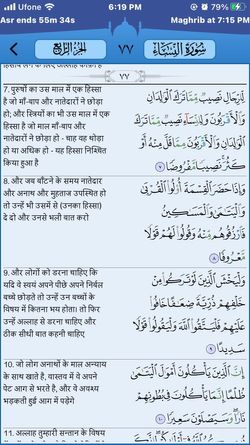 Ufone
6:19 PM
79%
Asr ends 55m 34s
Maghrib at 7:15 PM
سورة النساء
٧٧
الجزء الرابع
٧٧
7. पुरुषों का उस माल में एक हिस्सा
है जो माँ-बाप और नातेदारों ने छोड़ा
हो; और स्त्रियों का भी उस माल में एक
हिस्सा है जो माल माँ-बाप और
नातेदारों ने छोड़ा हो - चाह वह थोड़ा
हो या अधिक हो - यह हिस्सा निश्चित
किया हुआ है
لِّلرِّجَالِ نَصِيبٌ مِّمَّا تَرَكَ الْوَالِدَانِ
وَالْأَقْرَبُونَ وَلِلنِّسَاءِ نَصِيبٌ مِّمَّا تَرَكَ
الْوَالِدَانِ وَالْأَقْرَبُونَ مِمَّا قَلَّ مِنْهُ أَوْ
كَثُرَ نَصِيبًا مَّفْرُوضًا ٧
8. और जब बाँटने के समय नातेदार
और अनाथ और मुहताज उपस्थित हो
तो उन्हें भी उसमें से (उनका हिस्सा)
दे दो और उनसे भली बात करो
وَإِذَا حَضَرَ الْقِسْمَةَ أُولُو الْقُرْبَىٰ
وَالْيَتَامَىٰ وَالْمَسَاكِينُ
فَارْزُقُوهُم مِّنْهُ وَقُولُوا لَهُمْ قَوْلًا
مَّعْرُوفًا ٨
9. और लोगों को डरना चाहिए कि
यदि वे स्वयं अपने पीछे अपने निर्बल
बच्चे छोड़ते तो उन्हें उन बच्चों के
विषय में कितना भय होता। तो फिर
उन्हें अल्लाह से डरना चाहिए और
ठीक सीधी बात कहनी चाहिए
وَلْيَخْشَ الَّذِينَ لَوْ تَرَكُوا مِنْ
خَلْفِهِمْ ذُرِّيَّةً ضِعَافًا خَافُوا
عَلَيْهِمْ فَلْيَتَّقُوا اللَّهَ وَلْيَقُولُوا قَوْلًا
سَدِيدًا ٩
10. जो लोग अनाथों के माल अन्याय
के साथ खाते है, वास्तव में वे अपने
पेट आग से भरते है, और वे अवश्य
भड़कती हुई आग में पड़ेगे
إِنَّ الَّذِينَ يَأْكُلُونَ أَمْوَالَ الْيَتَامَىٰ
ظُلْمًا إِنَّمَا يَأْكُلُونَ فِي بُطُونِهِمْ
نَارًا وَسَيَصْلَوْنَ سَعِيرًا ١٠
11. अल्लाह तुम्हारी सन्तान के विषय